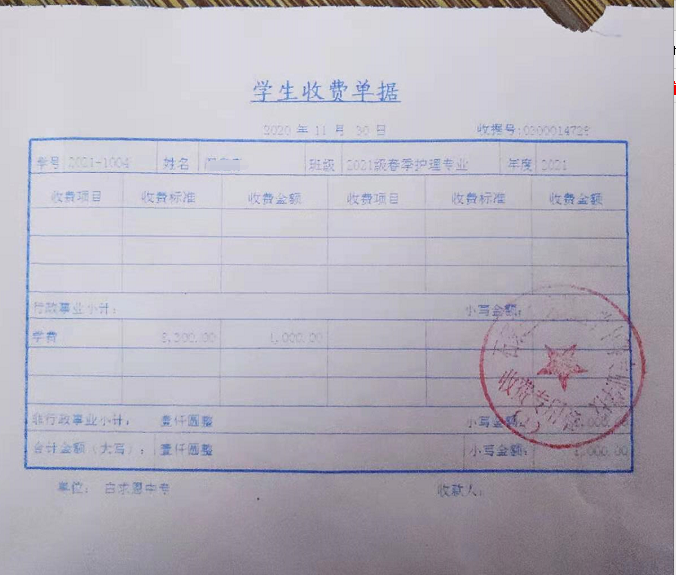 学生收费单据
2020 年 11 月 30 日 收据号:0300014728
学号 2021-1004 姓名 班级 2021级春季护理专业 年度 2021
收费项目 收费标准 收费金额 收费项目 收费标准 收费金额
行政事业小计: 小写金额:
学费 1,000.00
非行政事业小计: 壹仟圆整 小写金额:
合计金额(大写): 壹仟圆整 小写金额: 1,000.00
收费专用章
单位: 白求恩中专 收款人: